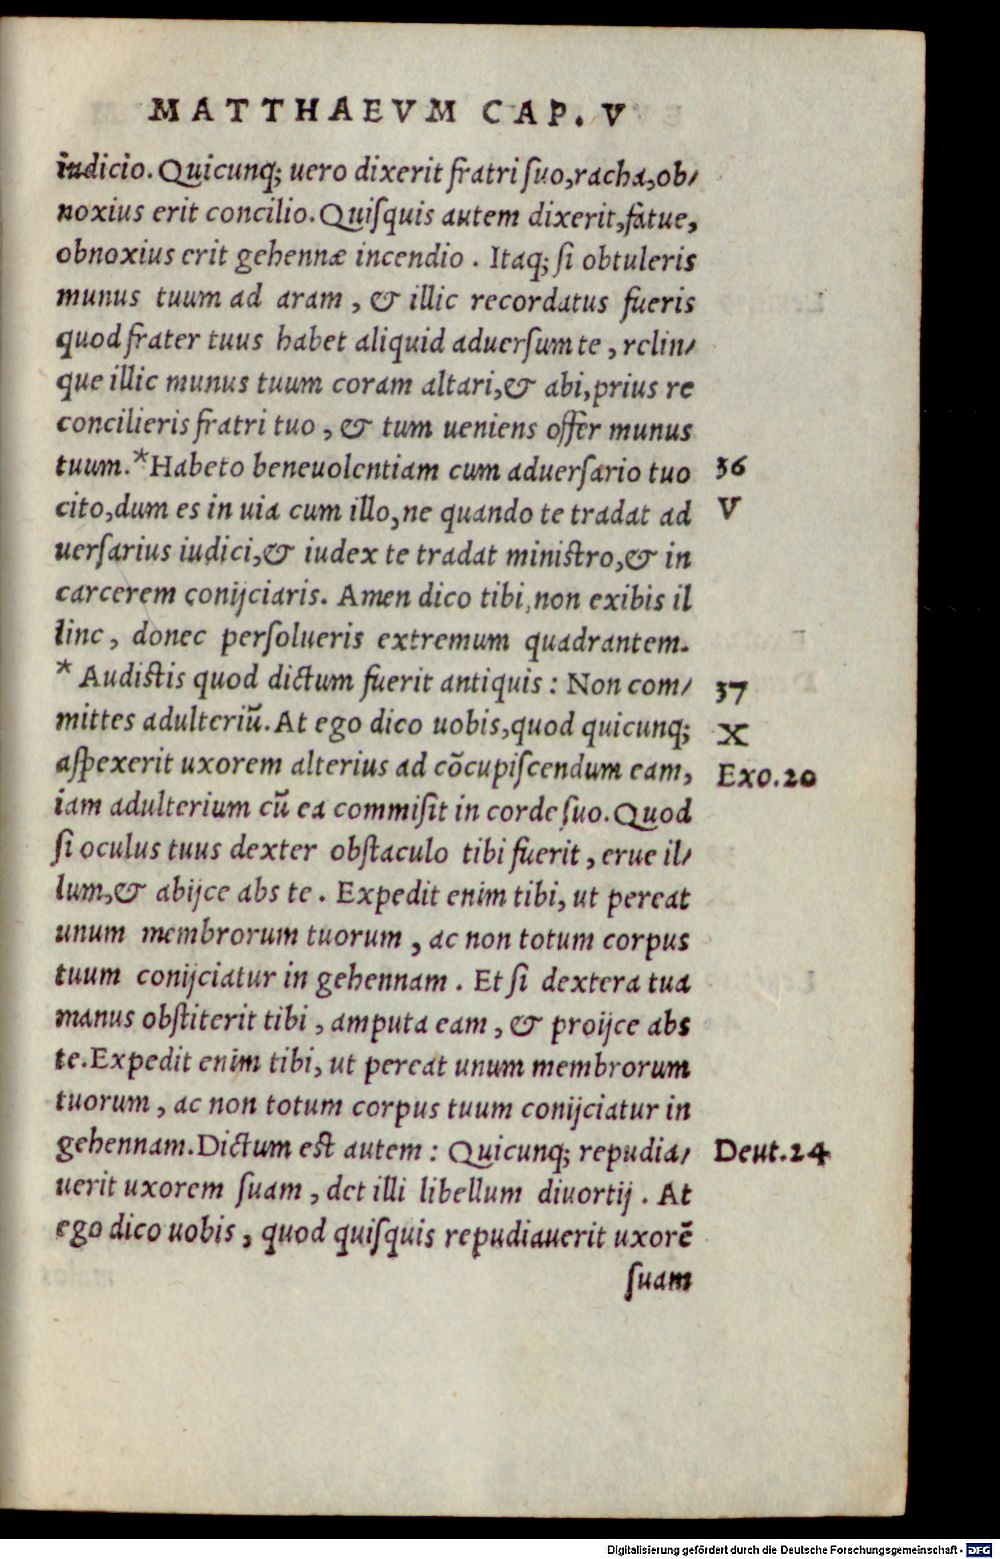 MATTHAEVM CAP. V
iudicio. Quicunq; uero dixerit fratri ſuo, racha, ob/
noxius erit concilio. Quiſquis autem dixerit, fatue,
obnoxius erit gehennæ incendio. Itaq; ſi obtuleris
munus tuum ad aram, & illic recordatus fueris
quod frater tuus habet aliquid aduerſum te, relin/
que illic munus tuum coram altari, & abi, prius re
concilieris fratri tuo, & tum ueniens offer munus
tuum. *Habeto beneuolentiam cum aduerſario tuo 36
cito, dum es in uia cum illo, ne quando te tradat ad V
uerſarius iudici, & iudex te tradat miniſtro, & in
carcerem conijciaris. Amen dico tibi, non exibis il
linc, donec perſolueris extremum quadrantem.
* Audiſtis quod dictum fuerit antiquis: Non com/ 37
mittes adulteriũ. At ego dico uobis, quod quicunq; X
aſpexerit uxorem alterius ad cõcupiſcendum eam, Exo.20
iam adulterium cũ ea commiſit in corde ſuo. Quod
ſi oculus tuus dexter obſtaculo tibi fuerit, erue il/
lum, & abijce abs te. Expedit enim tibi, ut pereat
unum membrorum tuorum, ac non totum corpus
tuum conijciatur in gehennam. Et ſi dextera tua
manus obſtiterit tibi, amputa eam, & proijce abs
te. Expedit enim tibi, ut pereat unum membrorum
tuorum, ac non totum corpus tuum conijciatur in
gehennam. Dictum eſt autem: Quicunq; repudia/ Deut.24
uerit uxorem ſuam, det illi libellum diuortij. At
ego dico uobis, quod quiſquis repudiauerit uxorẽ
ſuam
Digitalisierung gefördert durch die Deutsche Forschungsgemeinschaft - DFG